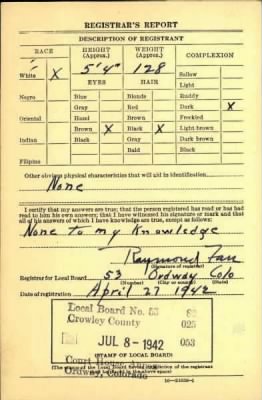 REGISTRAR'S REPORT
DESCRIPTION OF REGISTRANT
RACE HEIGHT (Approx.) WEIGHT (Approx.) COMPLEXION
5' 4" 128
White X Sallow
EYES HAIR Light
Negro Blue Blonde Ruddy
Gray Red Dark X
Oriental Hazel Brown Freckled
Brown X Black X Light brown
Indian Black Gray Dark brown
Bald Black
Filipino
Other obvious physical characteristics that will aid in identification
None
I certify that my answers are true; that the person registered has read or has had
read to him his own answers; that I have witnessed his signature or mark and that
all of his answers of which I have knowledge are true, except as follows:
None to my Knowledge
Raymond
(Signature of registrar)
Registrar for Local Board 53 Ordway Colo
(Number) (City or county) (State)
Date of registration April 27 1942
Local Board No. 53 82
Crowley County 025
JUL 8 - 1942 053
Court House
Ordway, Colorado
(STAMP OF LOCAL BOARD)
(The stamp of the Local Board having jurisdiction of the registrant
shall be placed in the above space)